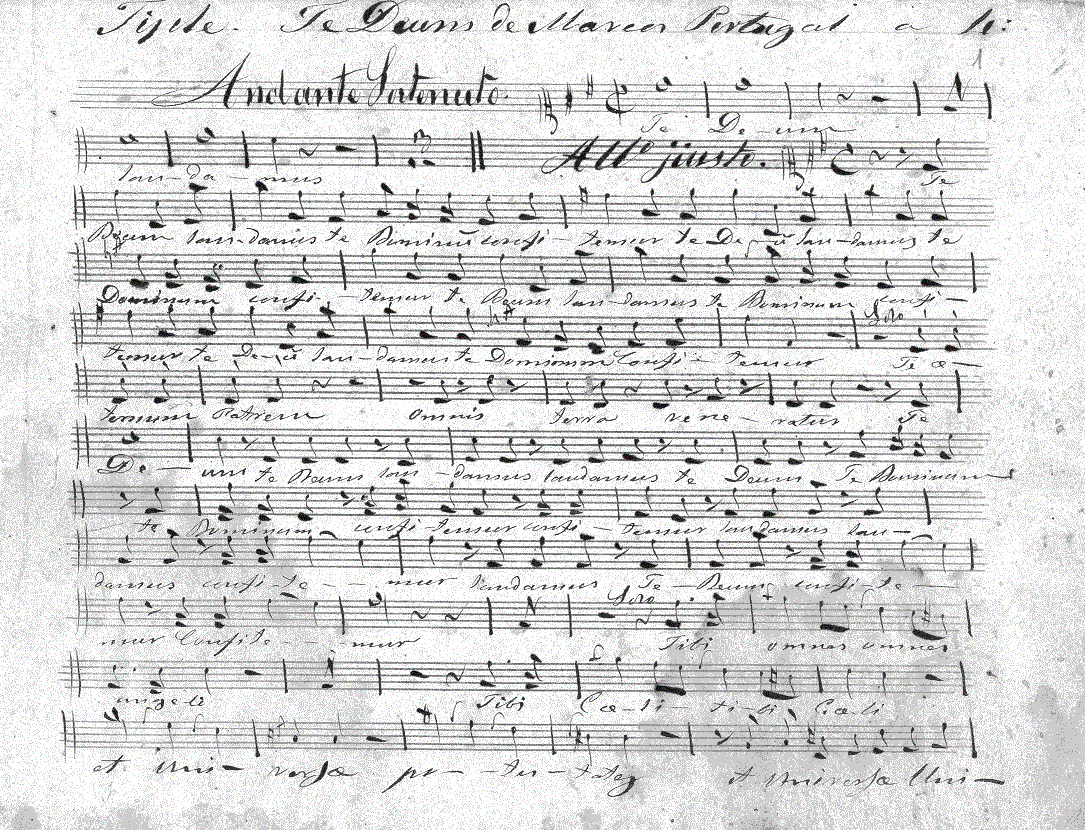 Tiple. Te Deum de Marcos Portugal a 4:
1
Andante Sostenuto.
Te De-um
lau-da mus All.º justo. Te
Deum lau-damus te Dominũ confi- temur te De-ũ lau-damus te
Dominum confi-temur te Deum lau-damus te Dominum confi-
Solo
temur te De-ũ lau-damus te Dominum Confi- temur Te æ-
ternum Patrem omnis terra vene-ratur Te
De-um te Deum lau-damus laudamus te Deum Te Dominum
te Dominum confi-temur confi-temur laudamus lau-
damus confi-te--mur laudamus Te-Deum confi-te
Solo
mur Confite--mur Tibi omnes omnes
angeli Tibi Cœ-li- ti-bi Cœli
et Uni-versæ po-tes-tates et Universæ Uni-